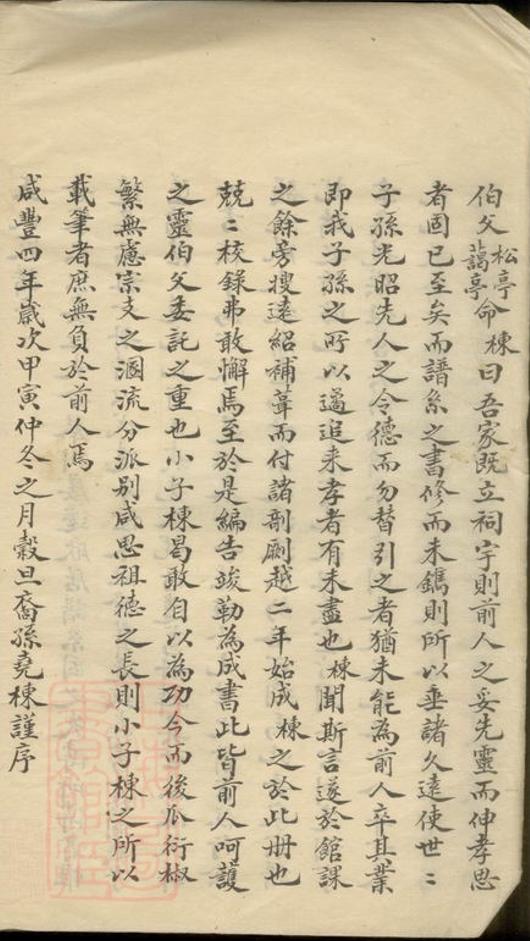 伯父松亭藹亭命棟曰吾家既立祠宇則前人之妥先靈而伸孝思
者固已至矣而譜系之書修而未鐫則所以垂諸久遠使世〻
子孫光昭先人之令德而勿替引之者猶未能為前人卒其業
即我子孫之所以遹追来孝者有未盡也棟聞斯言遂於館課
之餘旁搜遠紹補葺而付諸剞劂越二年始成棟之於此册也
兢〻校錄弗敢懈焉至於是編告竣勒為成書此皆前人呵護
之靈伯父委託之重也小子棟曷敢自以為功今而後瓜衍椒
繁無慮宗支之溷流分派別咸思祖德之長則小子棟之所以
載筆者庶無負於前人焉
咸豐四年歲次甲寅仲冬之月穀旦裔孫堯棟謹序